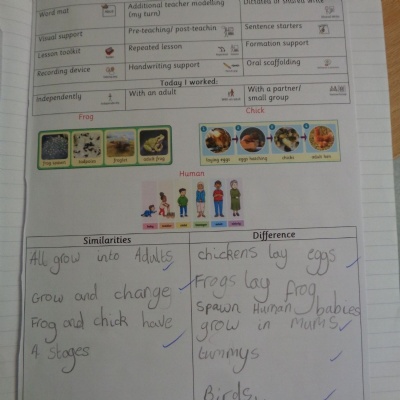 Word mat
Additional teacher modelling
(my turn)
Dictated or shared write
Visual support
Pre-teaching/ post-teachin
Sentence starters
Lesson toolkit
Repeated lesson
Formation support
Recording device
Handwriting support
Oral scaffolding
Today I worked:
Independently
With an adult
With a partner/
small group
Frog
Chick
frog spawn
tadpoles
froglet
adult frog
laying eggs
eggs hatching
chicks
adult hen
Human
Similarities
Difference
All grow into Adults
Grow and change
Frog and chick have
4 stages
chickens lay eggs
Frogs lay frog
Spawn Human babies
grow in mums
tummys
Birds